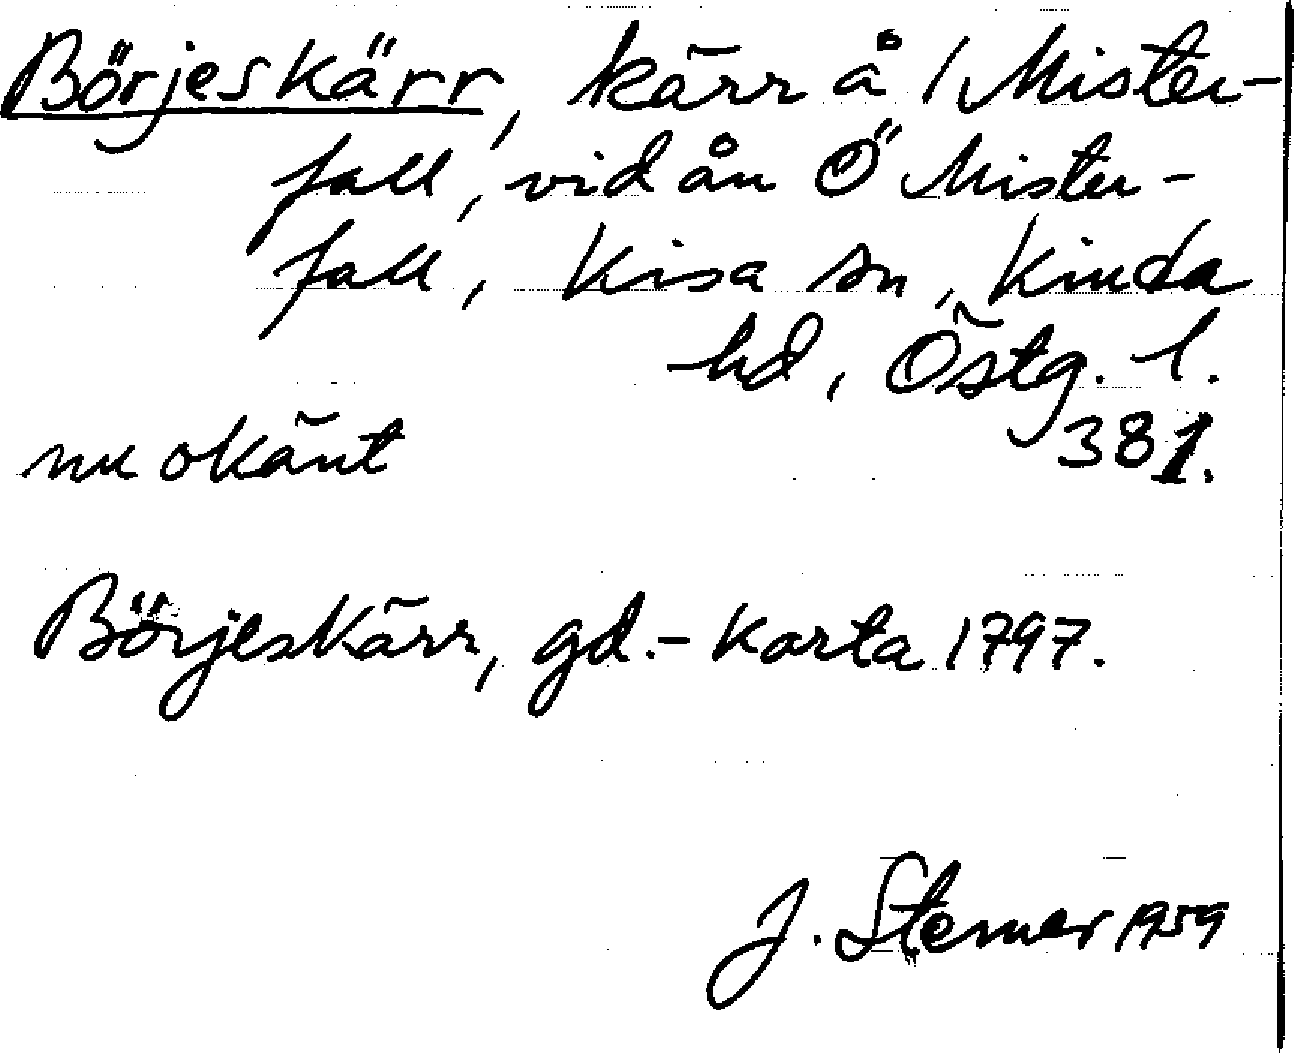 Börjeskärr, kärr å 1 Mister-
fall, vid ån Ö Mister-
fall, Kisa sn, Kinda
hd, Östg. l.
nu okänt 381.
Börjeskärr, gd.- Karta 1797.
J. Sterner 1959